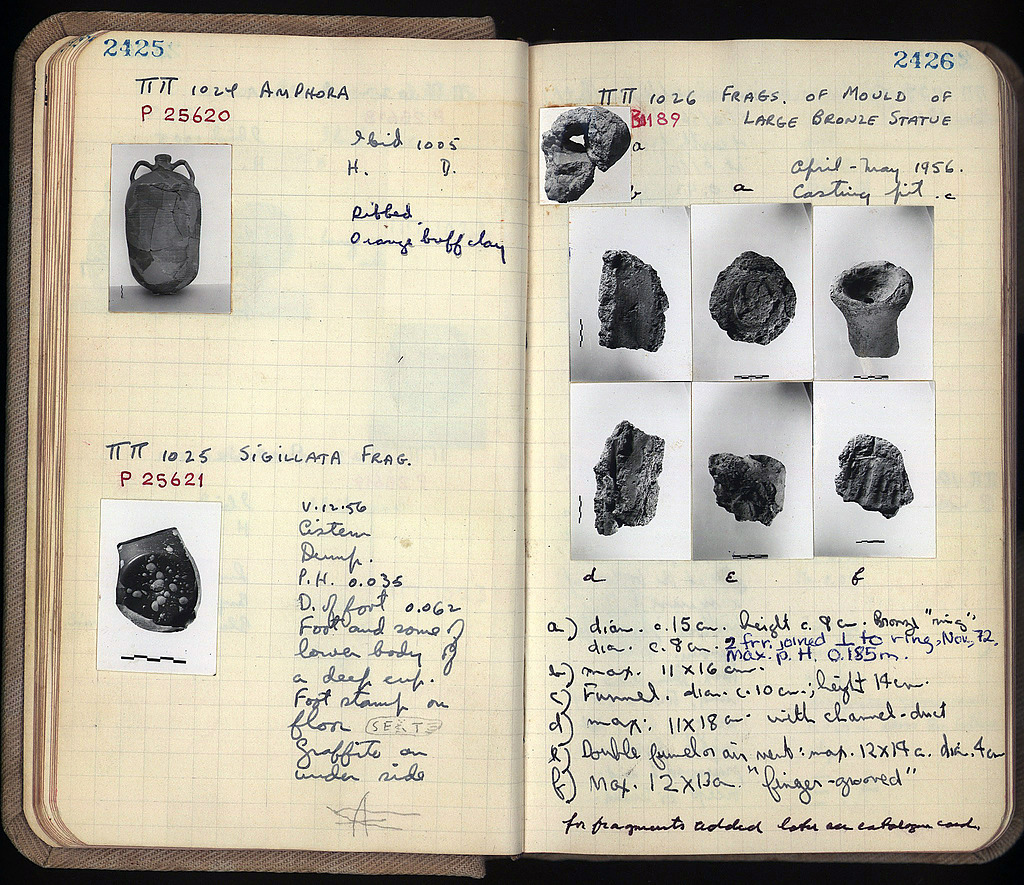 2425
ΠΠ 1024 AMPHORA
P 25620
Ibid 1005
H. D.
Ribbed.
Orange buff clay
ΠΠ 1025 SIGILLATA FRAG.
P 25621
V.12.56
Cistern
Dump.
P.H. 0.035
D. of foot 0.062
Foot and some of
lower body of
a deep cup.
Foot stamp on
floor
Graffito on
under side
2426
ΠΠ 1026 FRAGS. OF MOULD OF
189 LARGE BRONZE STATUE
a
April-May 1956.
b a Casting pit. c
d e f
a) diam. c.15 cm. height c. 9 cm. Bronze "ring"
dia. c. 8 cm. 2 frr. joined ⊥ to ring, Nov, 72.
Max. p. H. 0.185m.
b) max. 11 x 16 cm.
c) Funnel. diam. c. 10 cm.; height 14 cm.
d) max. 11 X 18 cm with channel-duct
e) Double funnel or air vent: max. 12 X 14 c. dia. 4 cm
f) Max. 12 X 13 cm. "finger-grooved"
for fragments added later see catalogue card.